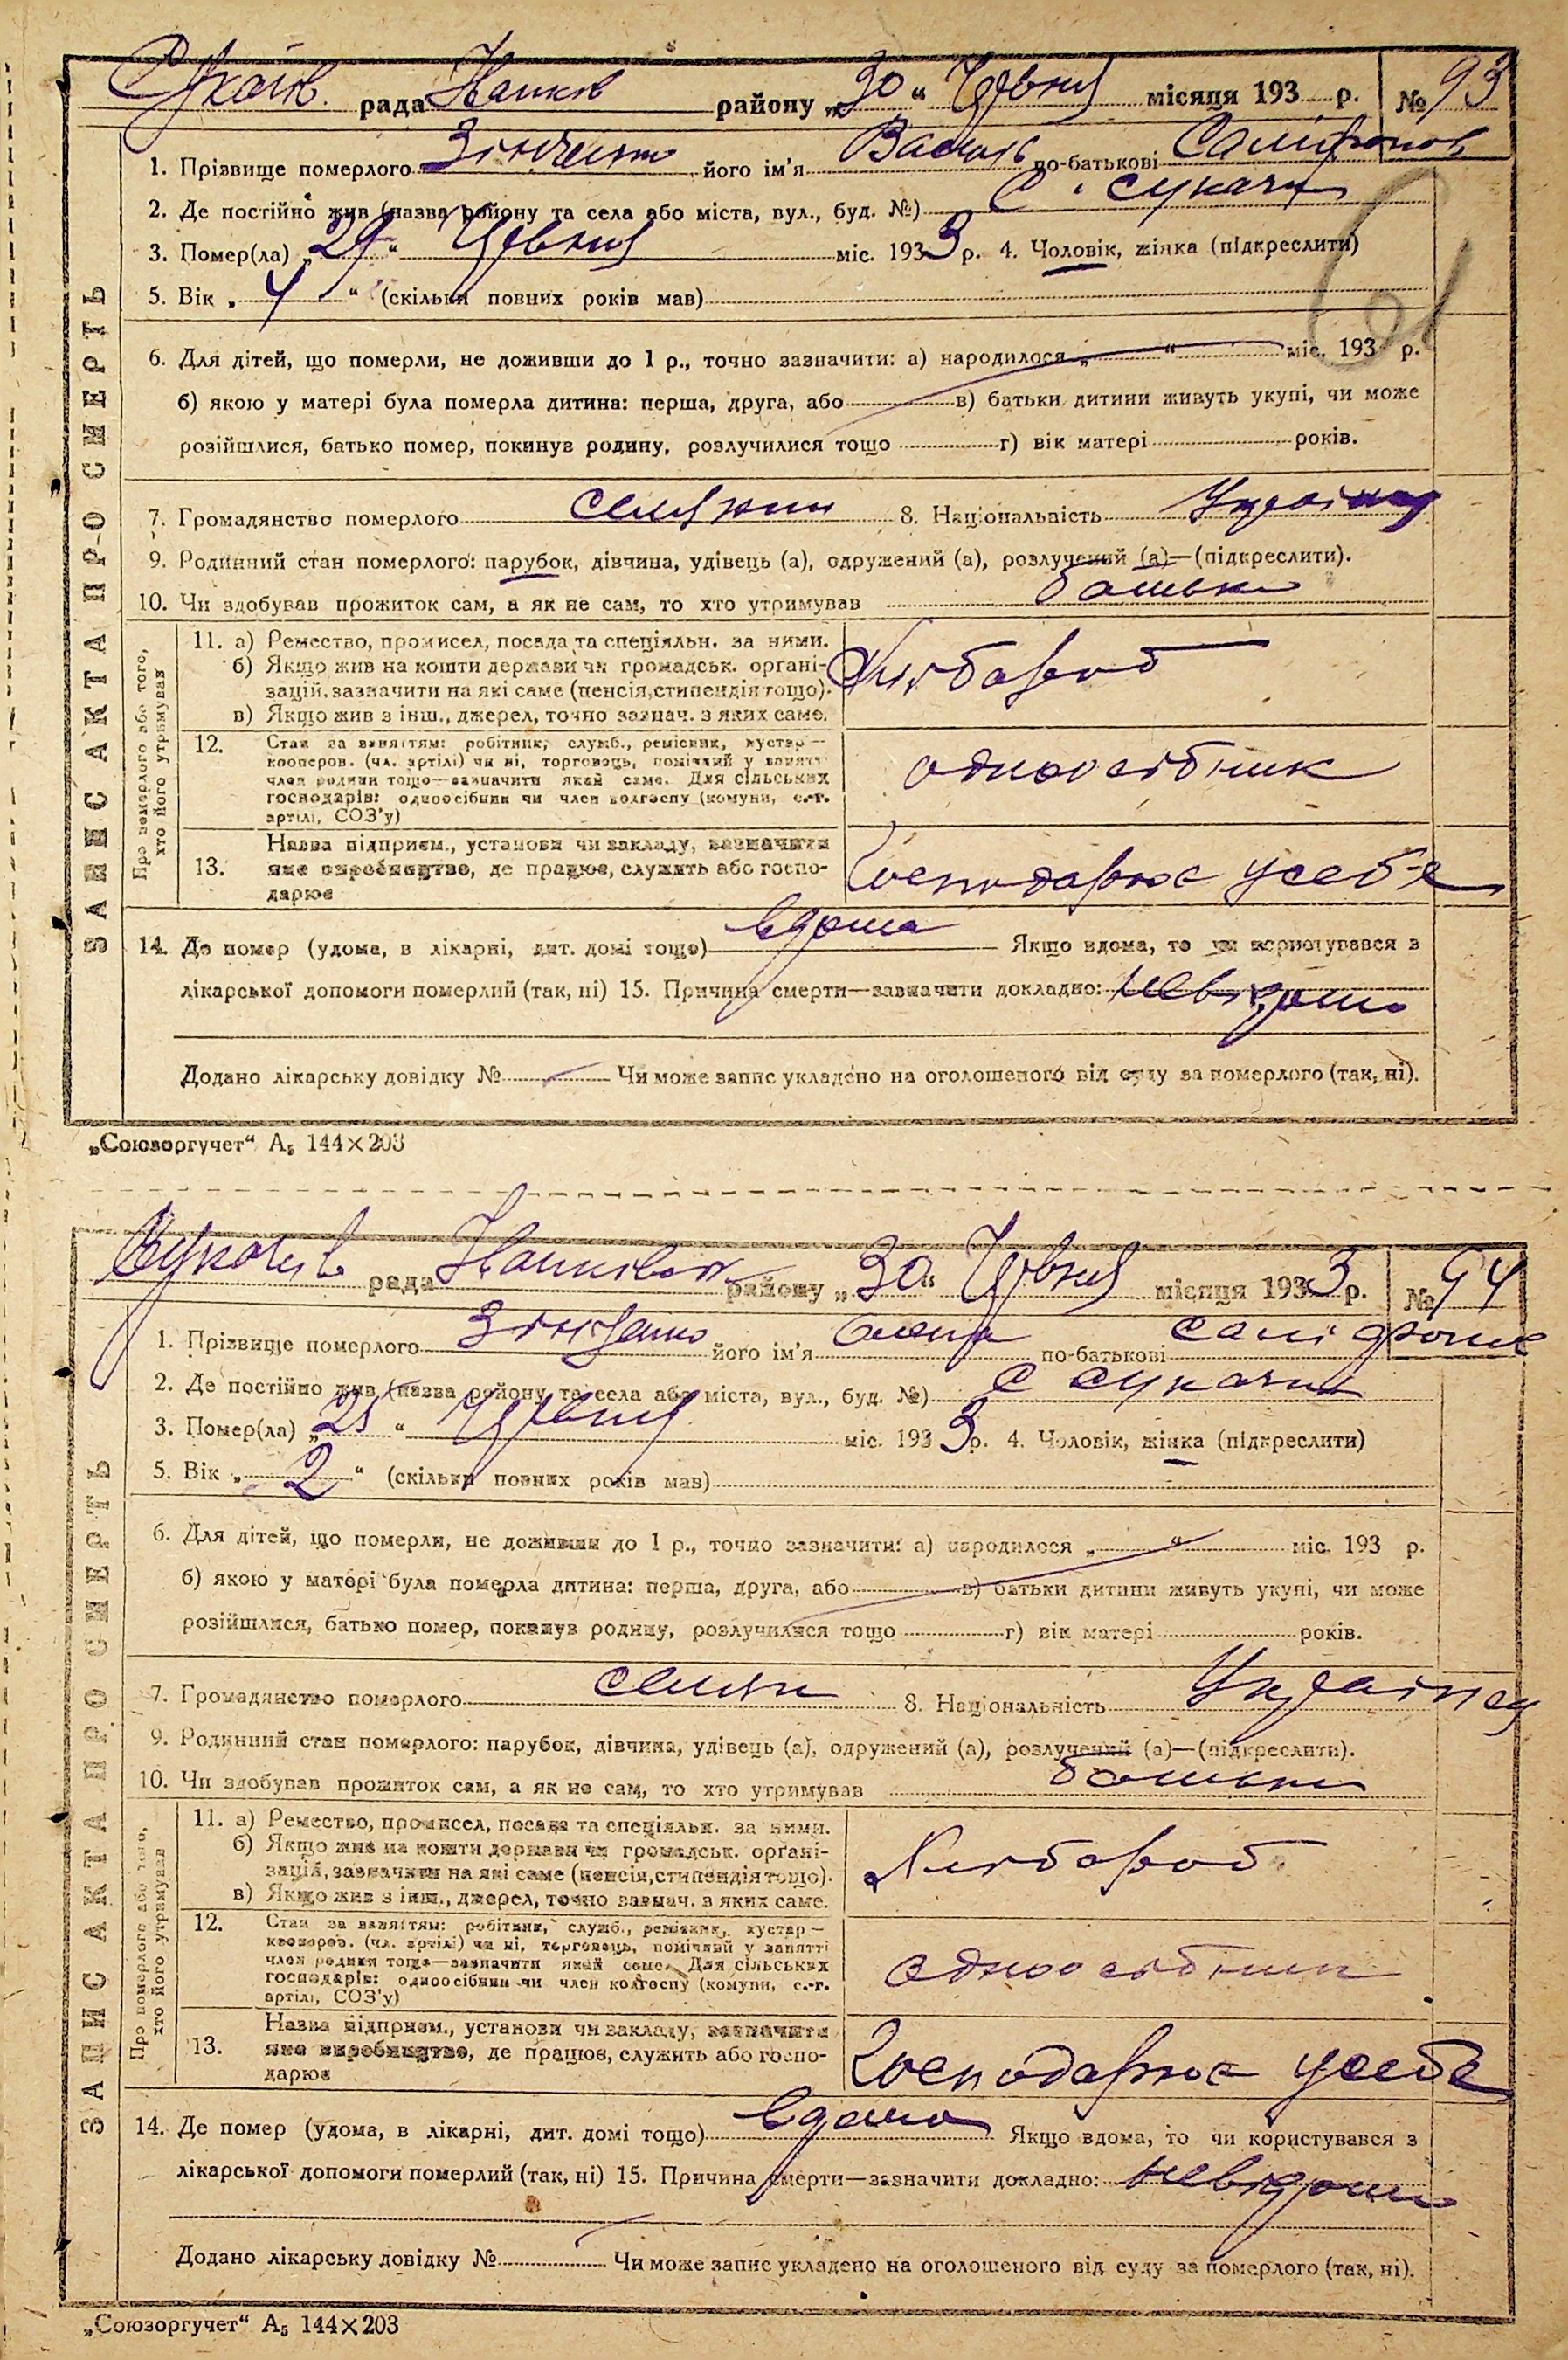 рада района „30“ Червня місяця 193 р. № 93
1. Прізвище померлого Зінченко його ім'я Василь по-батькові
2. Де постійно жив (назва району та села або міста, вул., буд. №) С. Сукачі
3. Помер(ла) „29“ Червня міс. 1933 р. 4. Чоловік, жінка (підкреслити)
5. Вік „4“ (скільки повних років мав)
6. Для дітей, що померли, не доживши до 1 р., точно зазначити: а) народилося „ “ міс. 193 р.
б) якою у матері була померла дитина: перша, друга, або в) батьки дитини живуть укупі, чи може
розійшлися, батько помер, покинув родину, розлучилися тощо г) вік матері років.
7. Громадянство померлого 8. Національність
9. Родинний стан померлого: парубок, дівчина, удівець (а), одружений (а), розлучений (а)—(підкреслити).
10. Чи здобував прожиток сам, а як не сам, то хто утримував батьки
ЗАПИС АКТА ПРО СМЕРТЬ
Про померлого або того, хто його утримував
11. а) Ремество, промисел, посада та спеціяльн. за ними.
б) Якщо жив на кошти держави чи громадськ. органі-
зацій, зазначити на які саме (пенсія, стипендія тощо).
в) Якщо жив з інш., джерел, точно зазнач. з яких саме.
Хлібороб
12. Стан за заняттям: робітник, служб., ремісник, кустар—
кооперов. (чл. артілі) чи ні, торговець, помічний у занятті
член родини тощо—зазначити який саме. Для сільських
господарів: одноосібник чи член колгоспу (комуни, с.-г.
артілі, СОЗ'у)
одноосібник
Назва підприєм., установи чи закладу, зазначити
13. яке виробництво, де працює, служить або госпо-
дарює
Господарює у себе
14. Де помер (удома, в лікарні, дит. домі тощо) вдома Якщо вдома, то чи користувався з
лікарської допомоги померлий (так, ні) 15. Причина смерти—зазначити докладно: невідомо
Додано лікарську довідку № Чи може запис укладено на оголошеного від суду за померлого (так, ні).
„Союзоргучет“ А5 144×203
рада району „30“ Червня місяця 1933 р. № 94
1. Прізвище померлого його ім'я по-батькові
2. Де постійно жив (назва району та села або міста, вул., буд. №) С Сукачі
3. Помер(ла) „25“ Червня міс. 1933 р. 4. Чоловік, жінка (підкреслити)
5. Вік „2“ (скільки повних років мав)
6. Для дітей, що померли, не доживши до 1 р., точно зазначити: а) народилося „ “ міс. 193 р.
б) якою у матері була померла дитина: перша, друга, або в) батьки дитини живуть укупі, чи може
розійшлися, батько помер, покинув родину, розлучилися тощо г) вік матері років.
7. Громадянство померлого 8. Національність
9. Родинний стан померлого: парубок, дівчина, удівець (а), одружений (а), розлучений (а)—(підкреслити).
10. Чи здобував прожиток сам, а як не сам, то хто утримував батьки
ЗАПИС АКТА ПРО СМЕРТЬ
Про померлого або того, хто його утримував
11. а) Ремество, промисел, посада та спеціяльн. за ними.
б) Якщо жив на кошти держави чи громадськ. органі-
зацій, зазначити на які саме (пенсія, стипендія тощо).
в) Якщо жив з інш., джерел, точно зазнач. з яких саме.
Хлібороб
12. Стан за заняттям: робітник, служб., ремісник, кустар—
кооперов. (чл. артілі) чи ні, торговець, помічний у занятті
член родини тощо—зазначити який саме. Для сільських
господарів: одноосібник чи член колгоспу (комуни, с.-г.
артілі, СОЗ'у)
одноосібник
Назва підприєм., установи чи закладу, зазначити
13. яке виробництво, де працює, служить або госпо-
дарює
Господарює у себе
14. Де помер (удома, в лікарні, дит. домі тощо) вдома Якщо вдома, то чи користувався з
лікарської допомоги померлий (так, ні) 15. Причина смерти—зазначити докладно: невідомо
Додано лікарську довідку № Чи може запис укладено на оголошеного від суду за померлого (так, ні).
„Союзоргучет“ А5 144×203